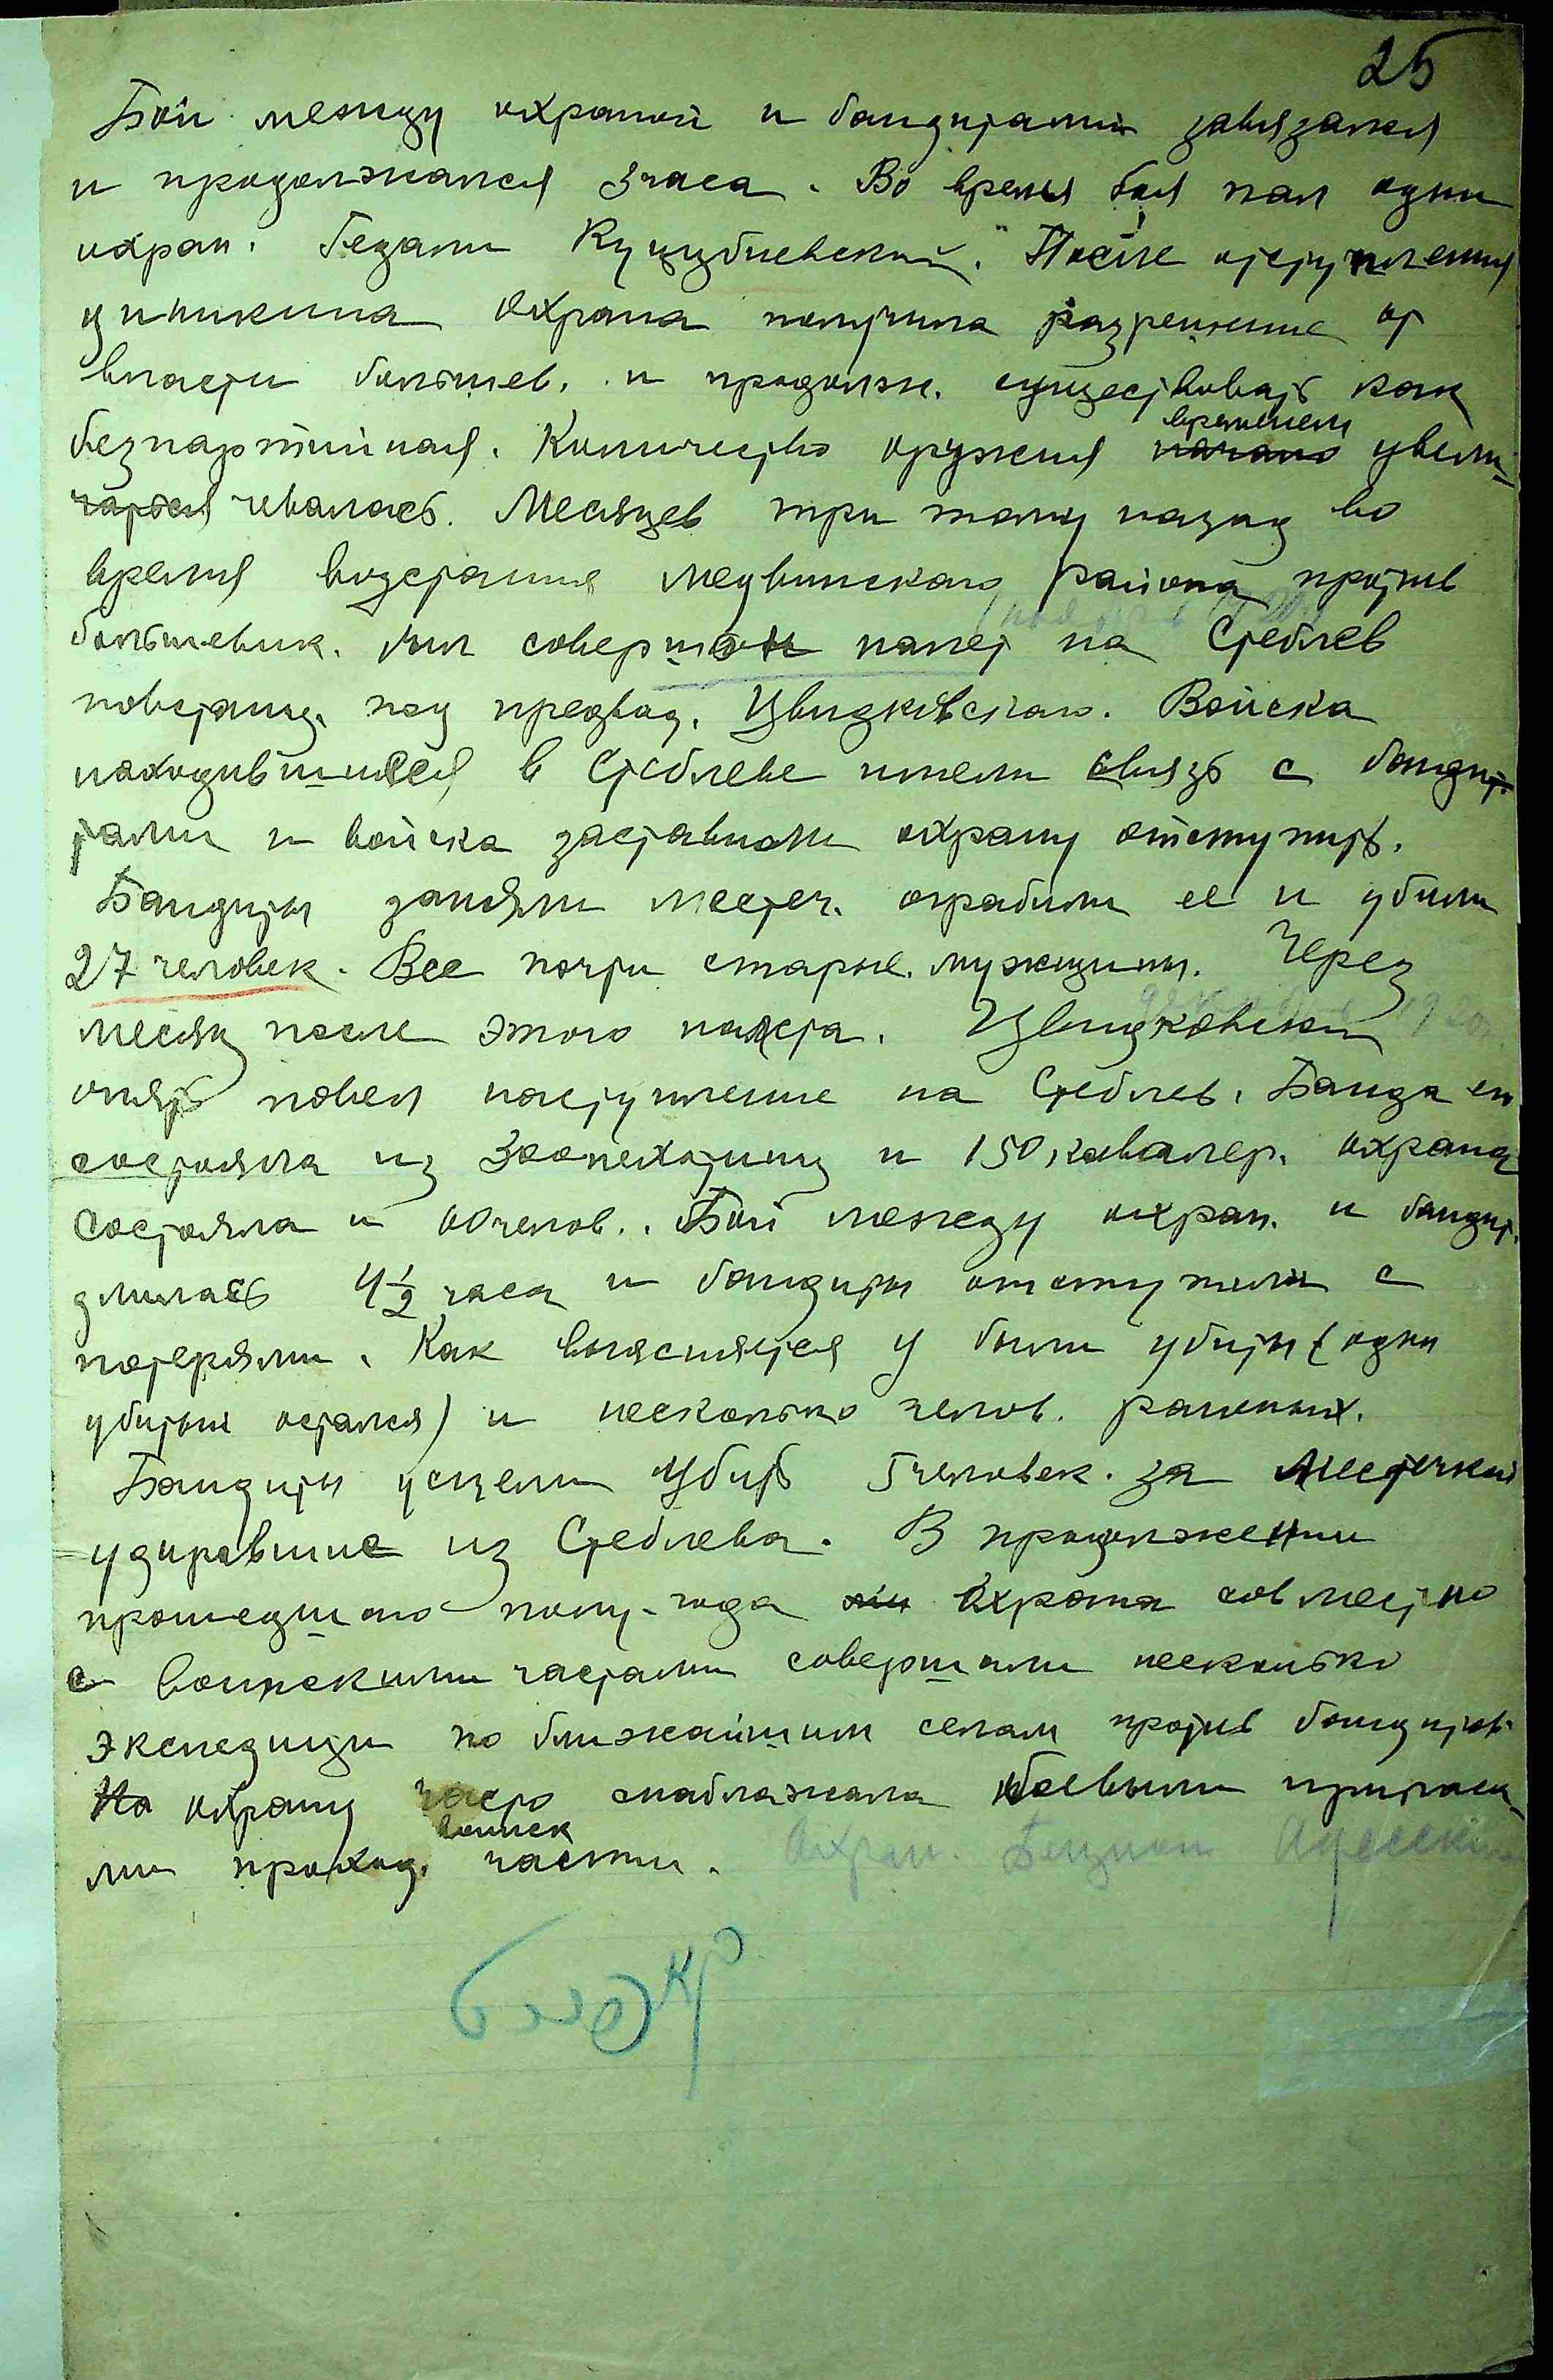 25
Бой между охраной и бандитами завязался
и продолжался 3 часа. Во время боя пал один
охран. После отступления
охрана получила разрешение от
власти большев. и продолж. существовать как
безпартийная. Количество оружия начало временем увели-
чаться чивалась. Месяцев три тому назад во
время возстания Медвинскаго района против
большевик. был совершон налет на Стеблев
повстанц. под предвод. Цвидковскаго. Войска
находившиеся в Стеблеве имели связь с банди-
тами и войска заставили охрану отступить.
Бандиты заняли местеч. ограбили ее и убили
27 человек. Все почти старые мужщины. Через
месяц после этого налета. Цвидковский
опять повел наступление на Стеблев. Банда его
состояла из 300 пехотинц и 150 кавалер. охрана
состояла и человек. Бой между охран. и бандит.
длилась 4 1/2 часа и бандиты отступили с
потерями. Как выясняется 4 были убиты (один
убитый остался) и несколько челов. раненных.
Бандиты успели убить 5 человек. за местечком
удиравшие из Стеблева. В продолжении
прошедшаго полу-года охрана совместно
с воинскими частами совершили несколько
экспедиции по ближайшим селам против бандитов.
На охрану часто снабжала боевыми припаса-
ми проход. воинск части. Охран. Бенцион